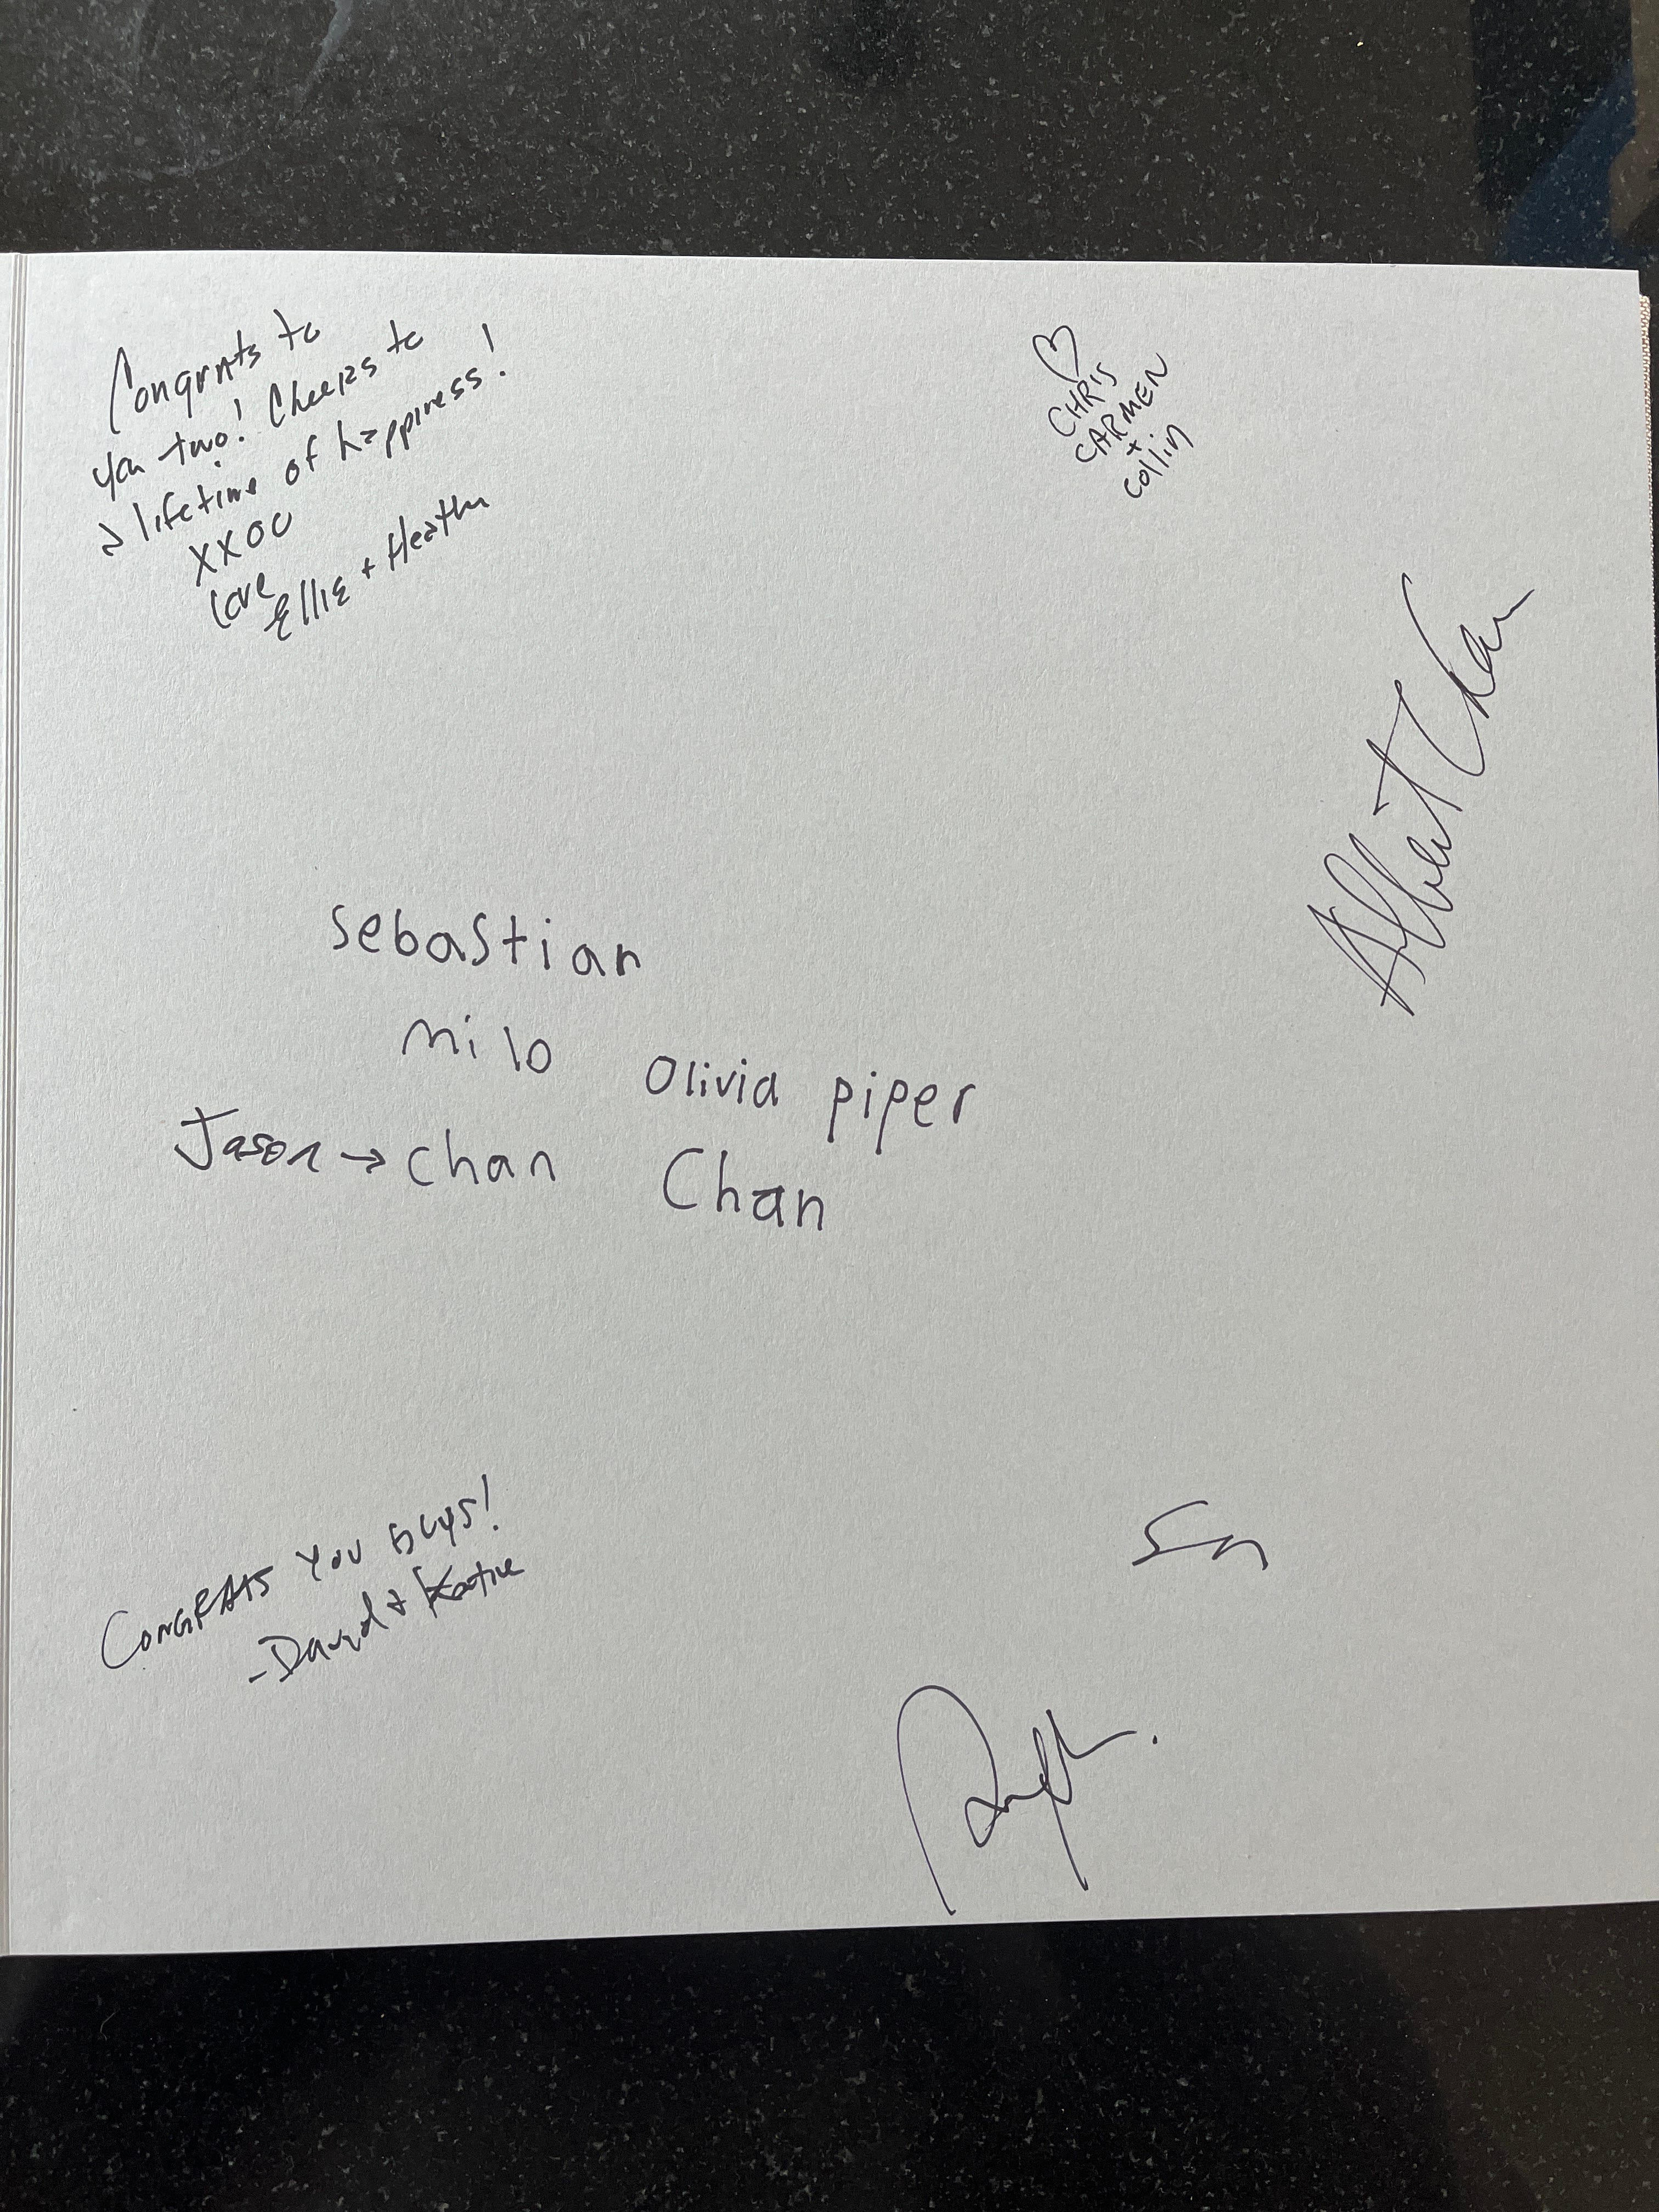 Congrats to
you two! Cheers to
a lifetime of happiness!
XXOO
Love
Ellie + Heather
♡
CHRIS
CARMEN
+
Collin
Albert Chan
Sebastian
Milo
Jason → Chan
Olivia piper
Chan
CONGRATS YOU GUYS!
- David + Katie